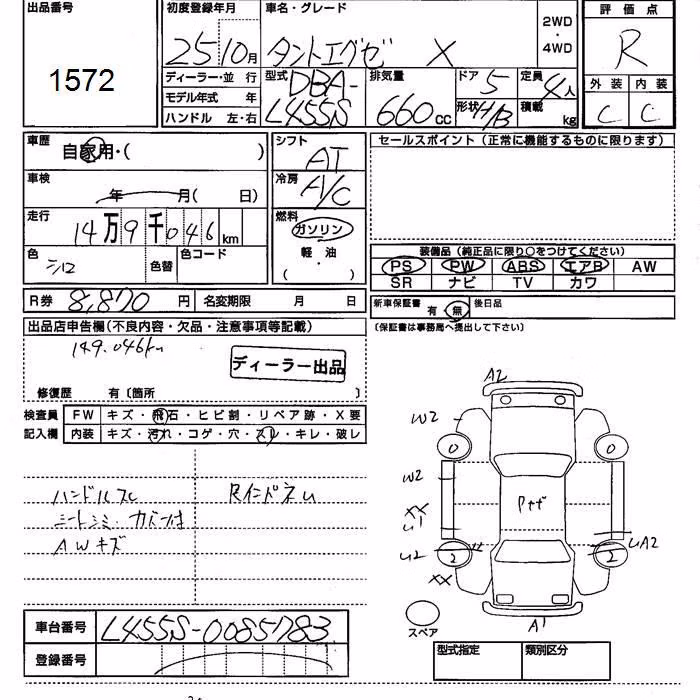 出品番号
1572
初度登録年月
25 10月
車名・グレード
タントエグゼ X
2WD
・
4WD
評価点
R
外装 内装
C C
ディーラー・並 行
モデル年式 年
ハンドル 左・右
型式 DBA-
L455S
排気量
660 cc
ドア 5
形状 H/B
定員 4人
積載 kg
車歴
自家用・( )
車検
年 月( 日)
走行
14万9千046km
色
シロ
色替
色コード
シフト
AT
冷房
A/C
燃料
ガソリン
軽・油
( ・ )
セールスポイント(正常に機能するものに限ります)
装備品(純正品に限り○をつけてください)
PS PW ABS エアB AW
SR ナビ TV カワ
R券 8,870 円 名変期限 月 日
新車保証書 有・無 後日品
(保証書は事務局へ提出して下さい)
出品店申告欄(不良内容・欠品・注意事項等記載)
149.046km
ディーラー出品
修復歴 有〔箇所 〕
検査員
記入欄
FW キズ・飛石・ヒビ割・リペア跡・X要
内装 キズ・汚れ・コゲ・穴・スレ・キレ・破レ
ハンドルスレ
シートシミ・カバー付
AWキズ
RインパネU
A2
W2
0 0
W2
XX
U1
U2
XX
2 2
UA2
A1
スペア
車台番号 L455S-0085783
登録番号
型式指定 類別区分